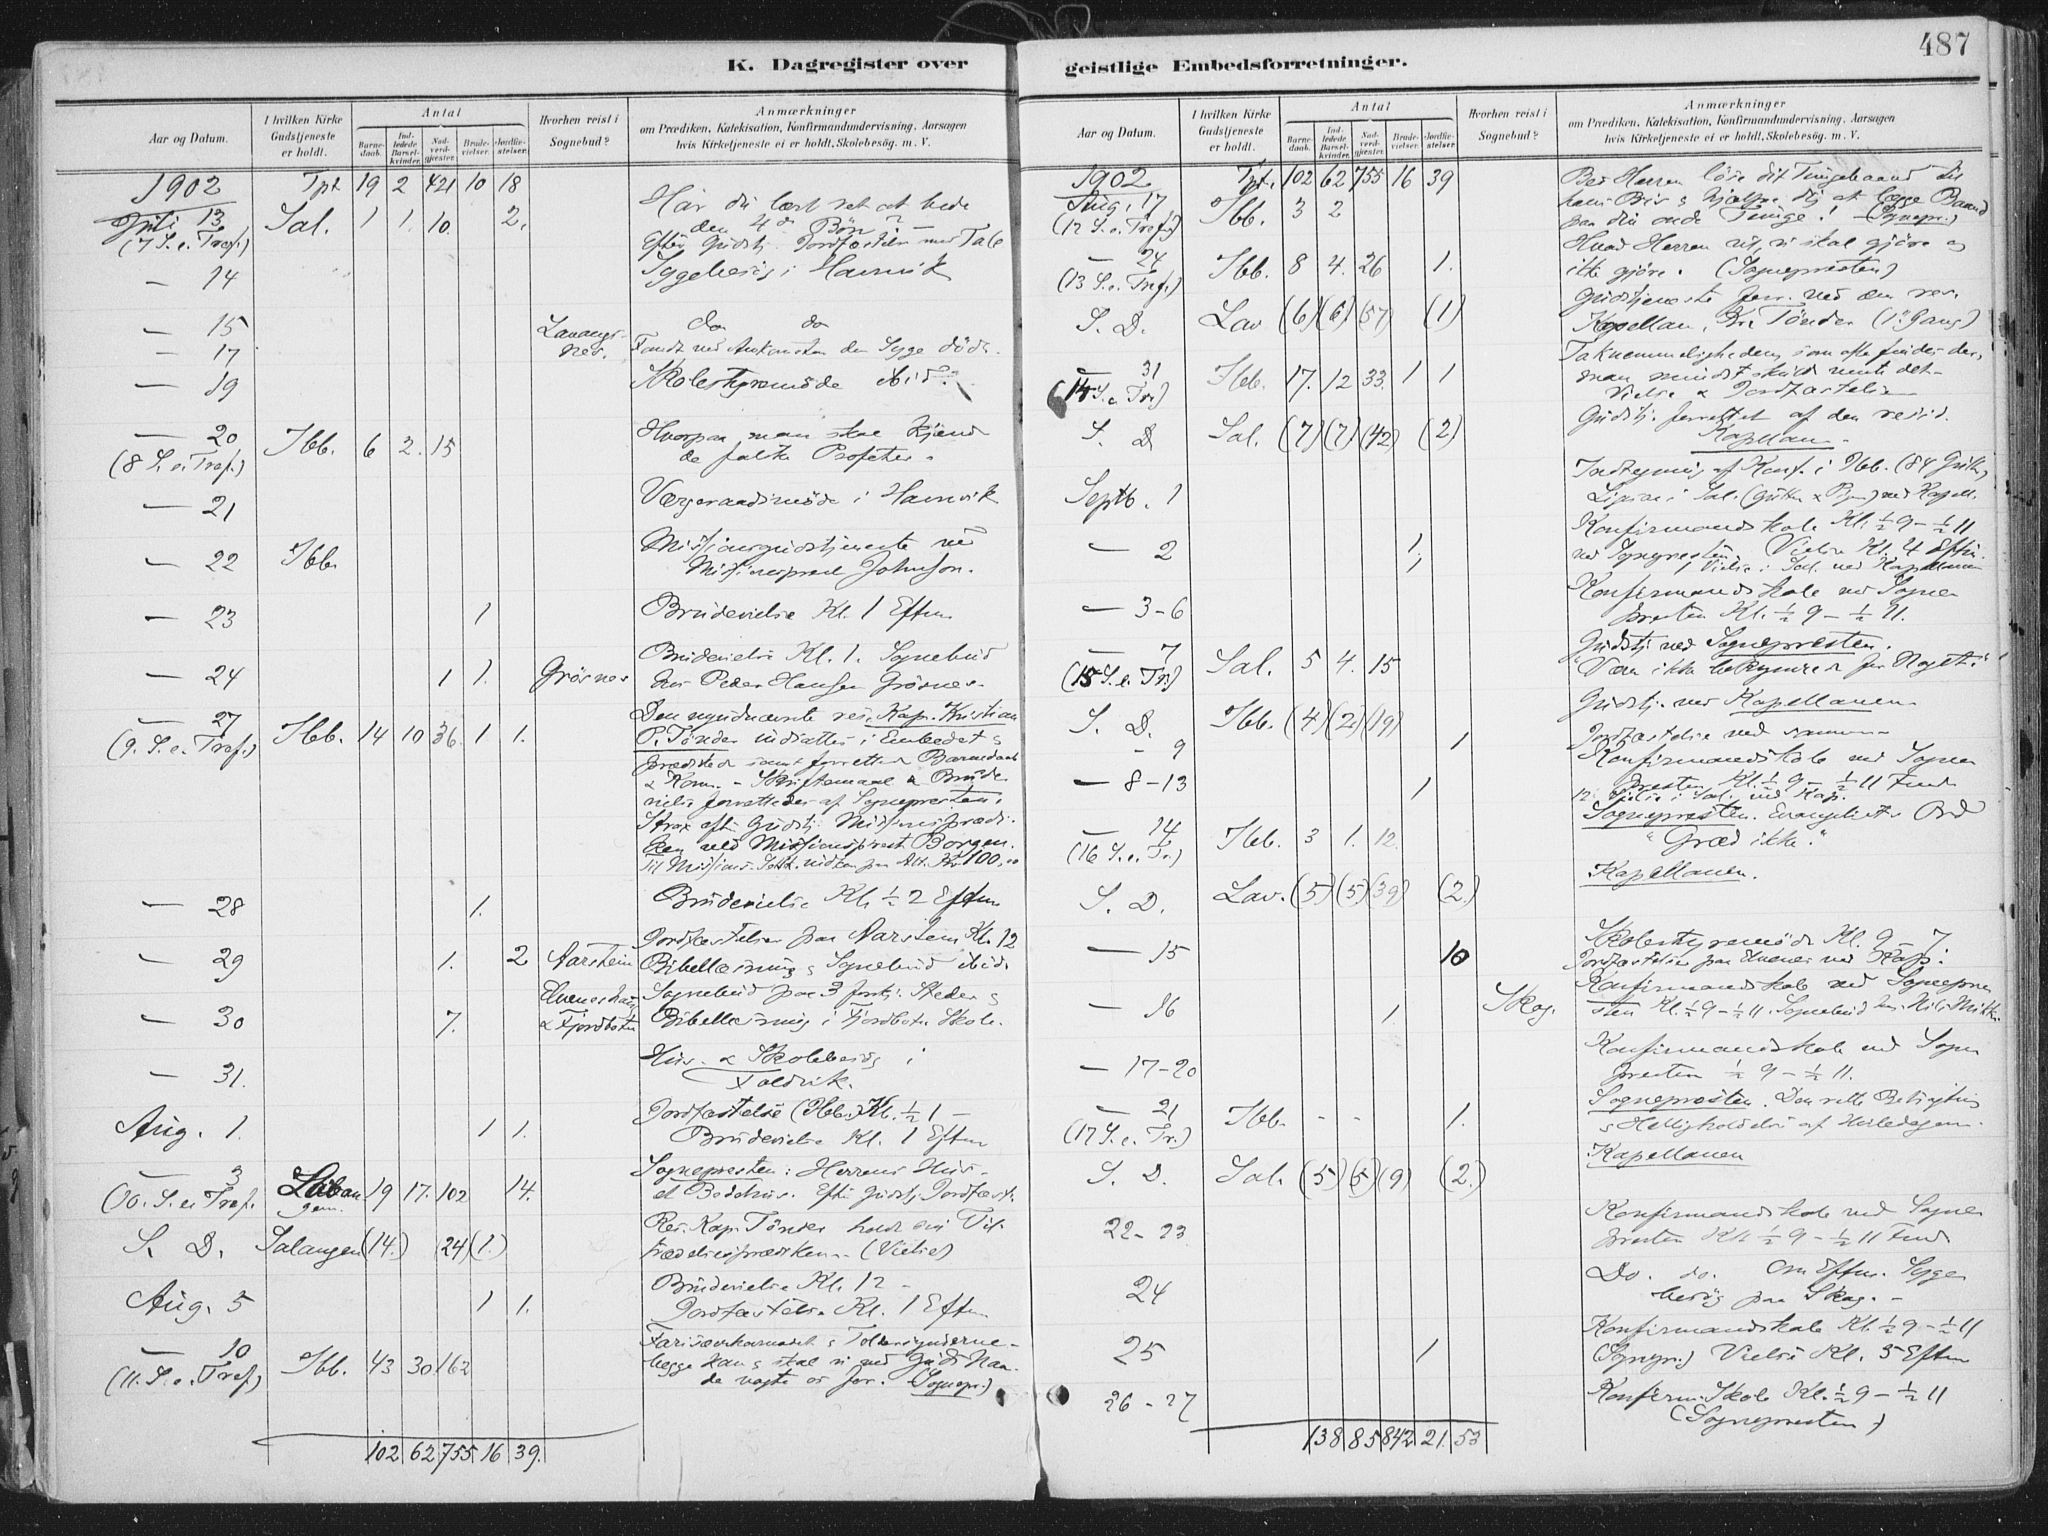 K. Dagregister over
Aar og Datum.
I hvilken Kirke Gudstjeneste er holdt.
Antal
Barnedaab.
Indledede Barselkvinder.
Nadverdgjester.
Brudevielser.
Jordfæstelser.
Hvorhen reist i Sognebud?
Anmærkninger
om Prædiken, Katekisation, Konfirmandundervisning, Aarsagen
hvis Kirketjeneste ei er holdt, Skolebesög. m. V.
1902 Tpt 19 2 421 10 18
Juli 13 Sal. 1 1. 10. 2. Har du lært ret at bede
(7 S. e. Tref.) den 4de Bön?
Efter Gudstj. Jordfæstelse med Tale
— 14 Sygebesög i Havnvik
— 15 do do
— 17 Lavangsnes. Fandt ved Ankomsten den Syge död.
— 19 Skolestyremöde ibid.
— 20 Ibb. 6 2. 15 Hvorpaa man skal kjende
(8 S. e. Tref.) de falske Profeter.
— 21 Værgeraadsmöde i Havnvik
— 22 Ibb. Missionsgudstjeneste ved
Missionsprest Johnson.
— 23 1 Brudevielse Kl. 1 Efterm
— 24 1 1. Grösnes Brudevielse Kl. 1. Sognebud
hos Peder Hansen Grösnes.
— 27 Ibb. 14 10 36. 1 1. Den nyudnævnte res. Kap. Kristian
(9. S. e. Tref.) P. Tönder indsattes i Embedet &
prædiked samt forretted Barnedaab
& Kom. — Skriftemaal & Brude-
vielse forrettedes af Sognepresten.
Strax efter Gudstj. Missionspræd-
iken ved Missionsprest Borgen.
— 28 1. Brudevielse Kl. ½ 2 Efterm
— 29 1. 2 Aarstein Jordfæstelser paa Aarstein Kl. 12
Bibellæsning & Sognebud ibid.
— 30 7. & Fjordbotn Sognebud paa 3 forskj. Steder &
Bibellæsning i Fjordbotn Skole.
— 31. Hus- & Skolebesög i
Foldvik.
Aug. 1. 1 1. Jordfæstelse (Ibb.) Kl. ½ 1 —
Brudevielse Kl. 1 Efterm
— 3 Lavangen. 19 17. 102 14. Sognepresten: Herrens Hus —
(10. S. e. Tref.) et Bedehus. Efter Gudstj. Jordfæst.
S. D. Salangen (14.) (24) (1.) Res. Kap. Tönder holdt sin Til-
trædelsesprædiken. (Vielse)
Aug. 5 1 1. Brudevielse Kl. 12 —
Jordfæstelse Kl. 1 Efterm
— 10 Ibb. 43 30 162
(11. S. e. Tref.) begge Han & skal vi ved Guds Naa-
de vogte os for. (Sognepr.)
102 62 755 16 39.
geistlige Embedsforretninger.
487
Aar og Datum.
I hvilken Kirke Gudstjeneste er holdt.
Antal
Barnedaab.
Indledede Barselkvinder.
Nadverdgjester.
Brudevielser.
Jordfæstelser.
Hvorhen reist i Sognebud?
Anmærkninger
om Prædiken, Katekisation, Konfirmandundervisning, Aarsagen
hvis Kirketjeneste ei er holdt, Skolebesög. m. V.
1902 Tpt. 102 62 755 16 39 Bed Herren löse dit Tungebaand til
Aug. 17 Ibb. 3 2 hans Pris & hjælpe dig at lægge Baand
(12 S. e. Tref.) paa din onde Tunge! — (Sognepr.)
— 24 Ibb. 8 4. 26 1. Hvad Herren vil, vi skal gjöre og
(13 S. e. Tref.) ikke gjöre. (Sognepresten)
S. D. Lav (6) (6) (57) (1) Gudstjeneste forr. ved den res.
Kapellan, Kr. Tönder (1ste Gang)
— 31 Ibb. 17. 12 33. 1 1 Taknemmeligheden, som ofte findes der,
(14 S. e. Tr.) man mindst skulde vente det —
Vielse & Jordfæstelse
S. D. Sal. (7) (7) (42) (2) Gudstj. forrettet af den resid.
Kapellan —
Septb. 1 Indtegning af Konf. i Ibb. (84 Gutter)
Ligesaa i Sal. (Gutter & Piger) ved Kapell.
— 2 1. Konfirmandskole Kl. ½ 9 – ½ 11
1 ved Sognepresten. Vielse Kl. 4 Efterm.
1 Vielse i Sal. ved Kapellanen
— 3-6 Konfirmandskole ved Sogne-
presten Kl. ½ 9 – ½ 11.
— 7 Sal. 5 4. 15 Gudstj ved Sognepresten.
(15 S. e. Tr.) "Vær ikke bekymred for Noget."
S. D. Ibb. (4) (2) (19) Gudstj. ved Kapellanen
— 9 1 Jordfæstelse ved samme
— 8-13 1 Konfirmandskole ved Sogne-
presten Kl. ½ 9 – ½ 11 Form
12. Vielse i Sal. ved Kap.
— 14 Ibb. 3 1. 12. Sognepresten. Evangeliets Ord
(16 S. e. Tr.) "Græd ikke."
S. D. Lav. (5) (5) (39) (2.) Kapellanen.
— 15 10 Skolestyremöde Kl. 9 – 7.
Jordfæstelse paa Elvenes ved Kap.
— 16 1. Skog. Konfirmandskole ved Sognepre-
sten Kl. ½ 9 – ½ 11. Sognebud
— 17-20 Konfirmandskole ved Sogne-
presten ½ 9 – ½ 11.
— 21 Ibb. - - 1. Sognepresten. Den rette Betragtning
(17 S. e. Tr.) & Helligholdelse af Hviledagen.
S. D. Sal. (5) (5) (9) (2.) Kapellanen
22-23 Konfirmandskole ved Sogne-
presten Kl. ½ 9 – ½ 11 Form
24 Do. do. Om Efterm. Syge-
besög paa Skog. —
25 1 Konfirmandskole Kl. ½ 9 – ½ 11
(Sognepr.) Vielse Kl. 5 Efterm
26-27 Konfirm. Skole Kl. ½ 9 – ½ 11
(Sognepresten)
138 85 842 21. 53